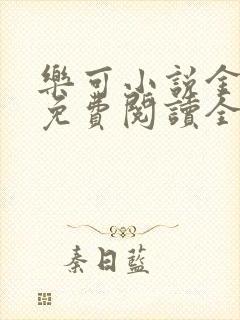 樂可小說全
免費閱讀全
秦日藍